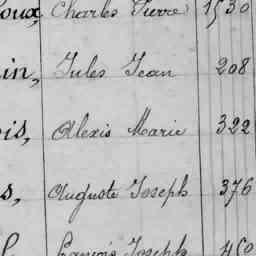 oux, Charles Pierre 1530
in, Jules Jean 208
is, Alexis Marie 322
s, Auguste Joseph 376
François Joseph 460